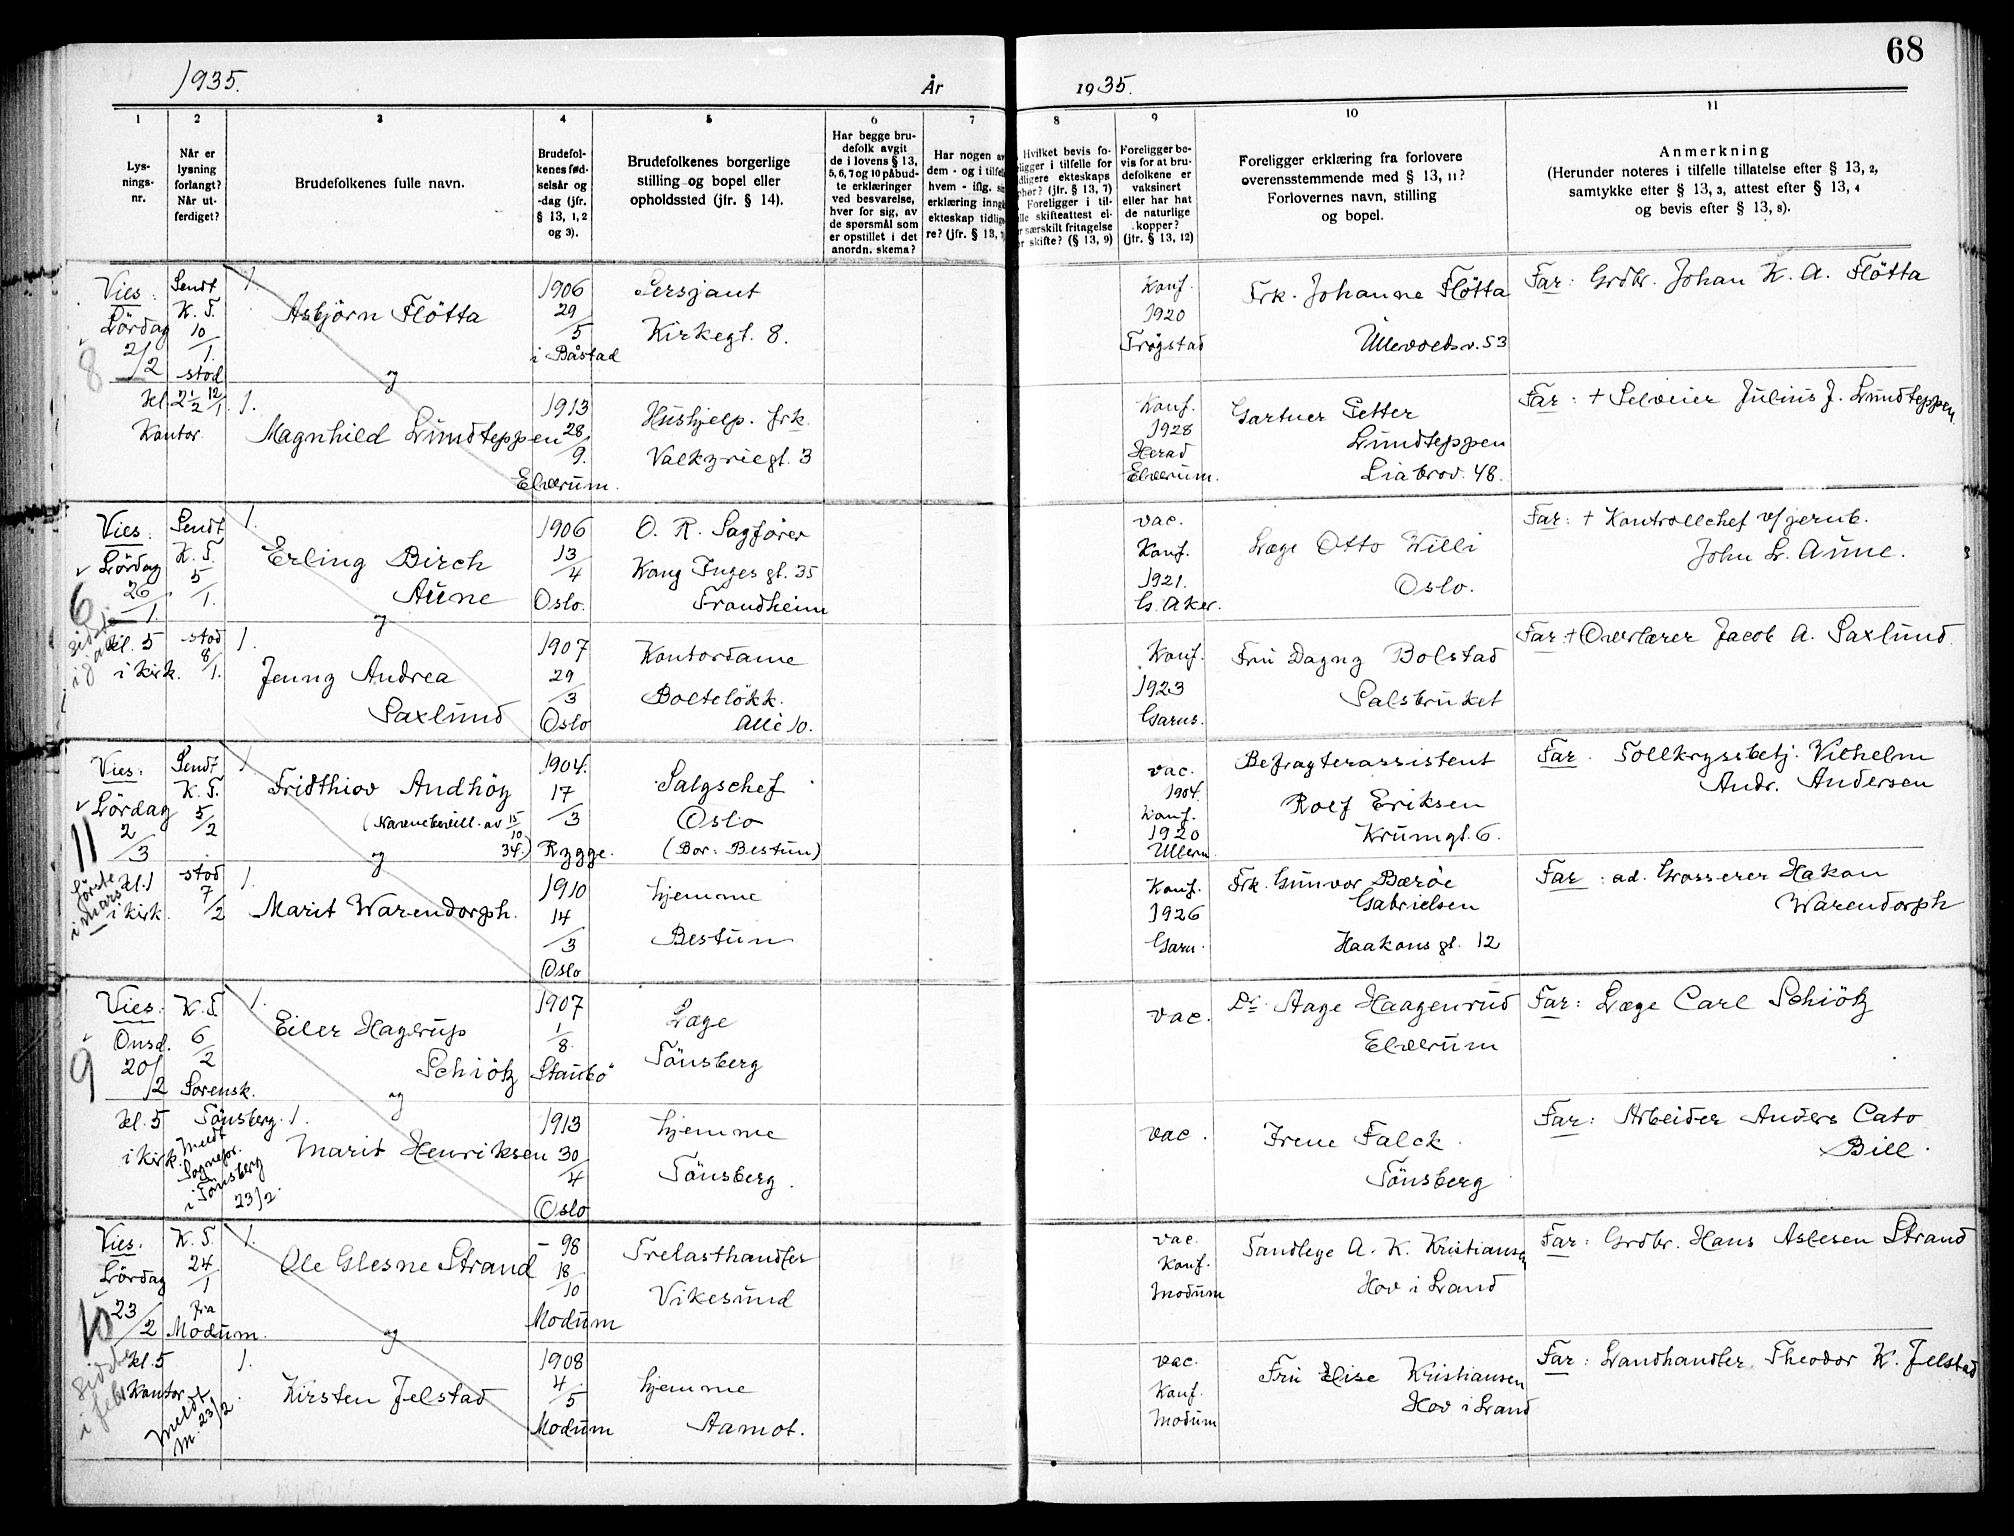 68
1935.
År
1935.
1
2
3
4
5
6
7
8
9
10
11
Lysningsnr.
Når er lysning forlangt? Når utferdiget?
Brudefolkenes fulle navn.
Brudefolkenes fødselsår og -dag (jfr. § 13, 1, 2 og 3).
Brudefolkenes borgerlige stilling og bopel eller opholdssted (jfr. § 14).
Har begge brudefolk avgit de i lovens § 13, 5, 6, 7 og 10 påbudte erklæringer ved besvarelse, hver for sig, av de spørsmål som er opstillet i det anordn. skema?
Foreligger bevis for at brudefolkene er vaksinert eller har hat de naturlige kopper? (jfr. § 13, 12)
Foreligger erklæring fra forlovere overensstemmende med § 13, 11? Forlovernes navn, stilling og bopel.
Anmerkning
(Herunder noteres i tilfelle tillatelse efter § 13, 2, samtykke efter § 13, 3, attest efter § 13, 4 og bevis efter § 13, 8).
8
Vies:
Lördag
2/2
Kl. 2 1/2
Kontor.
Sendt
K. T.
10/1.
stod
12/1.
1.
Asbjörn Flötta
og
1906
29/5
i Båstad
Sersjant
Kirkegt. 8.
Konf.
1920
Trøgstad
Frk. Johanne Flötta
Ullevoldsv. 53
Far: Grdbr. Johan K. A. Flötta
1.
Magnhild Lundteppen
1913
28/9.
Elverum.
Hushjelp. frk.
Valkyriegt. 3
Konf.
1928
Herad
Elverum.
Gartner Petter
Lundteppen
Liabrov. 48.
Far: + Selveier Julius J. Lundteppen
6
Vies:
Lördag
26/1.
Kl. 5
i Kirk.
Sendt
K. T.
5/1.
stod
8/1.
1.
Erling Birch
Aune
og
1906
13/4
Oslo.
O. R. Sagfører
Kong Inges gt. 35
Trondheim
vac.
Konf.
1921.
G. Aker.
Læge Otto Willi
Oslo.
Far: + Kontrollchef v/jernb.
John L. Aune.
1.
Jenny Andrea
Saxlund
1907
29/3
Oslo
Kontordame
Bolteløkk.
Allè 10.
Konf.
1923
Garns.
Fru Dagny Bolstad
Salsbruket
Far: + Overlærer Jacob A. Saxlund
11
Vies:
Lördag
2/3
Kl. 1
i Kirk.
første
i Mars
Sendt
K. T.
5/2
stod
7/2
1
Fridthiov Andhöy
(Navnebevill. av 15/10 34.)
og
1904.
17/3
Rygge.
Salgschef
Oslo
(Bor: Bestun)
vac.
1904.
Konf.
1920
Ullern
Befragterassistent
Rolf Eriksen
Krumgt. 6.
Far. Tollkryssbetj. Vilhelm
Andr. Andersen
1.
Marit Warendorph.
1910
14/3
Oslo
hjemme
Bestun
Konf.
1926
Garn.
Frk. Gunvor Bærøe
Gabrielsen
Haakons gt. 12
Far: ad. Grosserer Hakon
Warendorph
9
Vies:
Onsd.
20/2
Kl. 5
i Kirk.
K. T.
6/2
Sorensk.
Tönsberg.
Meldt
Sognepr.
i Tönsberg
23/2.
1.
Eiler Hagerup
Schiötz
og
1907
1/8.
Staubö
Læge
Tönsberg
vac.
Dr. Aage Haagenrud
Elverum
Far: Læge Carl Schiötz
1.
Marit Henriksen
1913
30/4
Oslo
hjemme
Tönsberg.
vac.
Irene Falck.
Tönsberg
Far: Arbeider Anders Cato
Bill.
10
Vies:
Lördag
23/2
Kl. 5
Kontor
Meldt
M. 23/2
sidste
i febr
K. T.
24/1
fra
Modum.
1.
Ole Glesne Strand
og
- 98
18/10
Modum
Trelasthandler
Vikesund
vac.
Konf.
Modum
Tandlege A. K. Kristiansen
Hov i Land
Far: Grdbr. Hans Aslesen Strand
1.
Kirsten Jelstad
1908
4/5
Modum
hjemme
Aamot.
vac.
Konf.
Modum
Fru Elise Kristiansen
Hov i Land
Far: Landhandler Theodor K. Jelstad